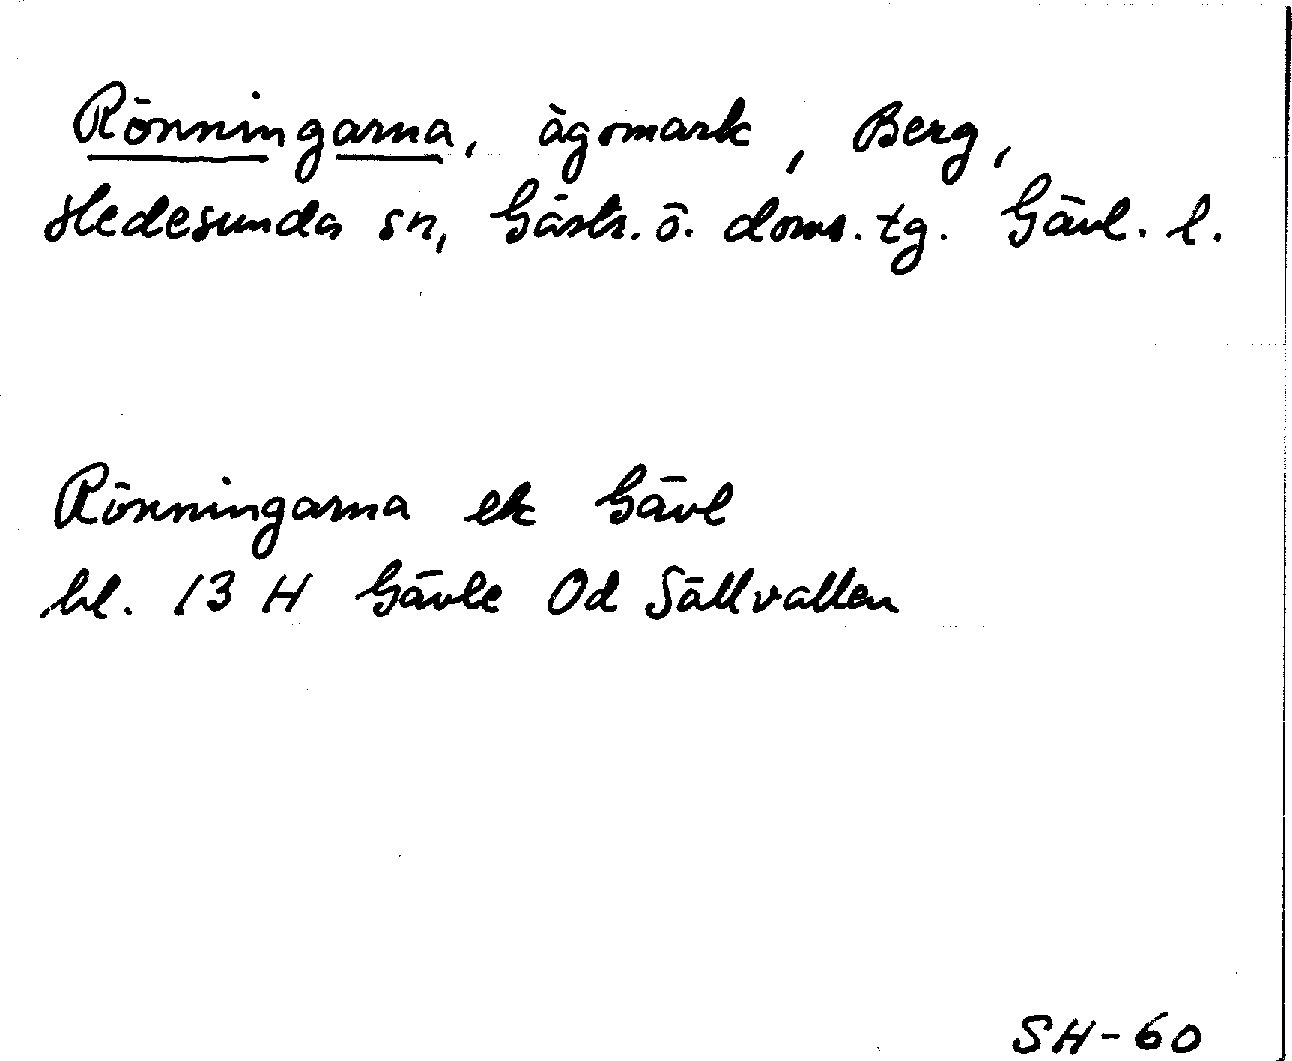 Rönningarna, ägomark, Berg,
Hedesunda sn, Gästr. ö. doms. tg. Gävl. l.
Rönningarna ek Gävl
bl. 13 H Gävle Od Sällvallen
SH-60